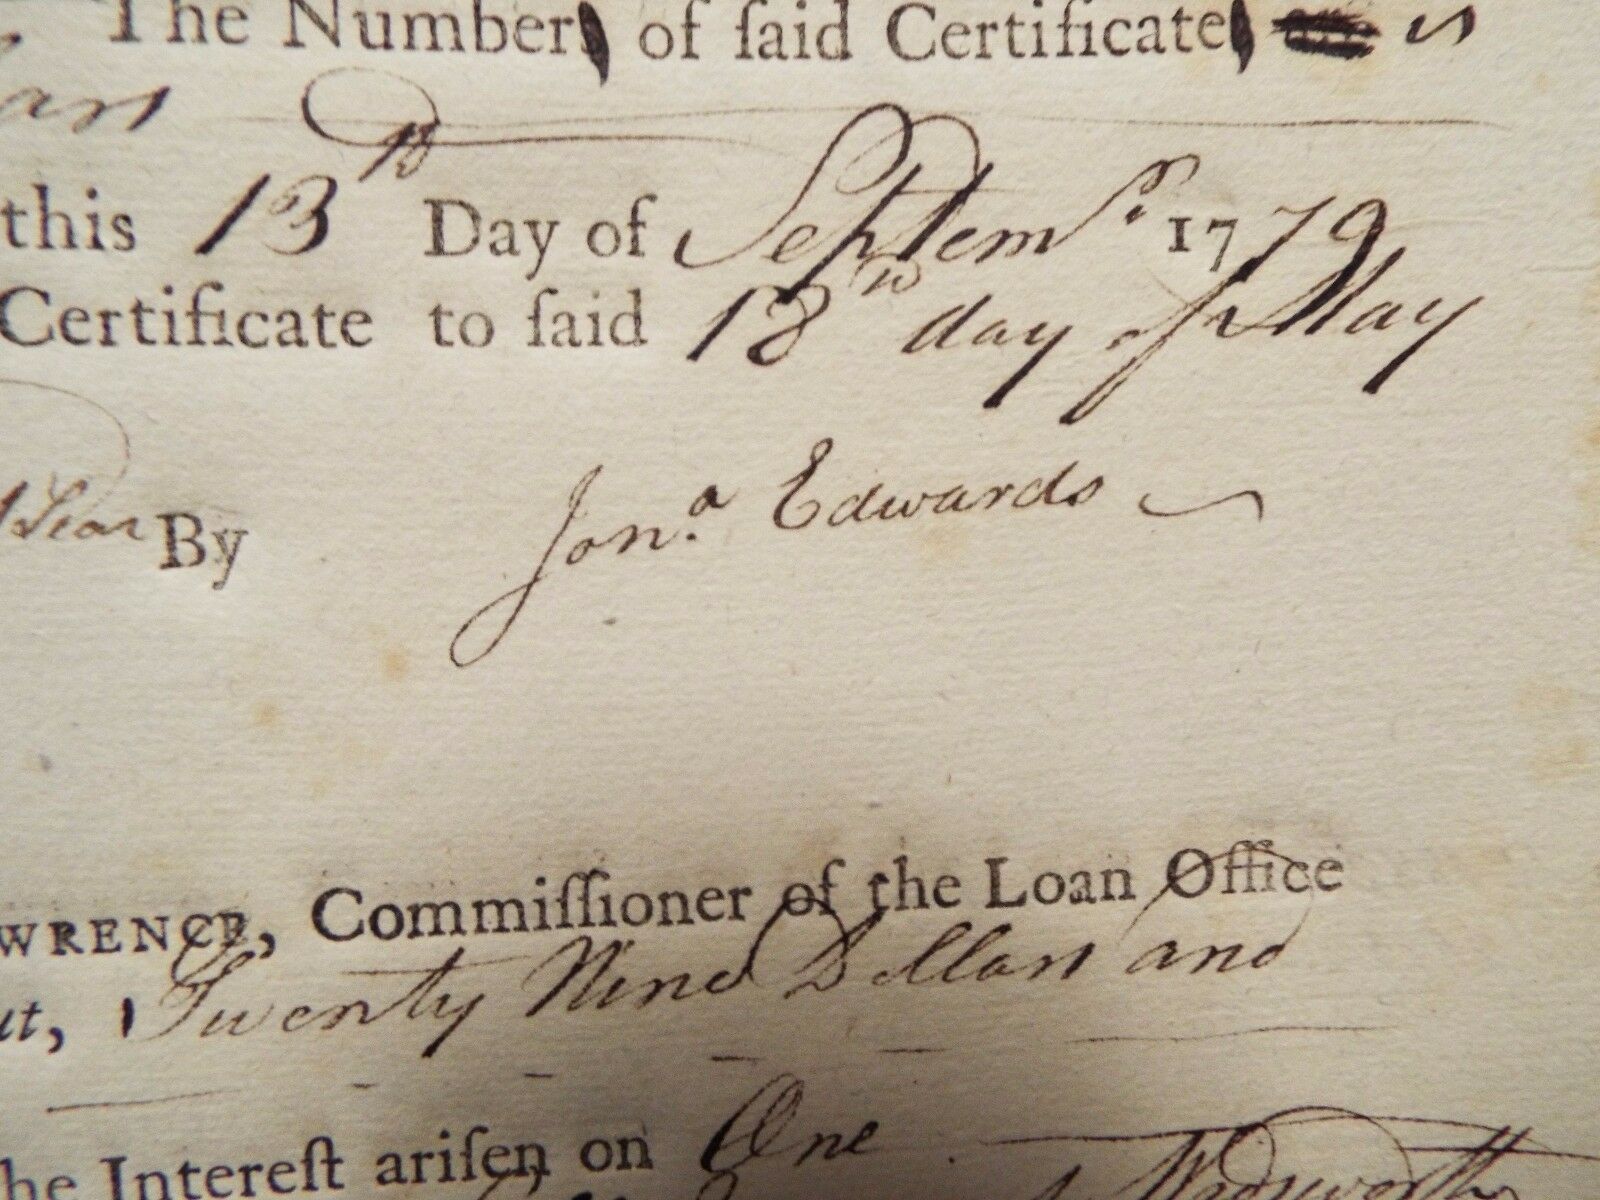 The Number of ſaid Certificate is
this 13th Day of Septemr. 1779
Certificate to ſaid 18th day of May
Year By Jona. Edwards
WRENCE, Commiſſioner of the Loan Office
ut, Twenty Nine Dollars and
he Intereſt ariſen on One
Wadsworth